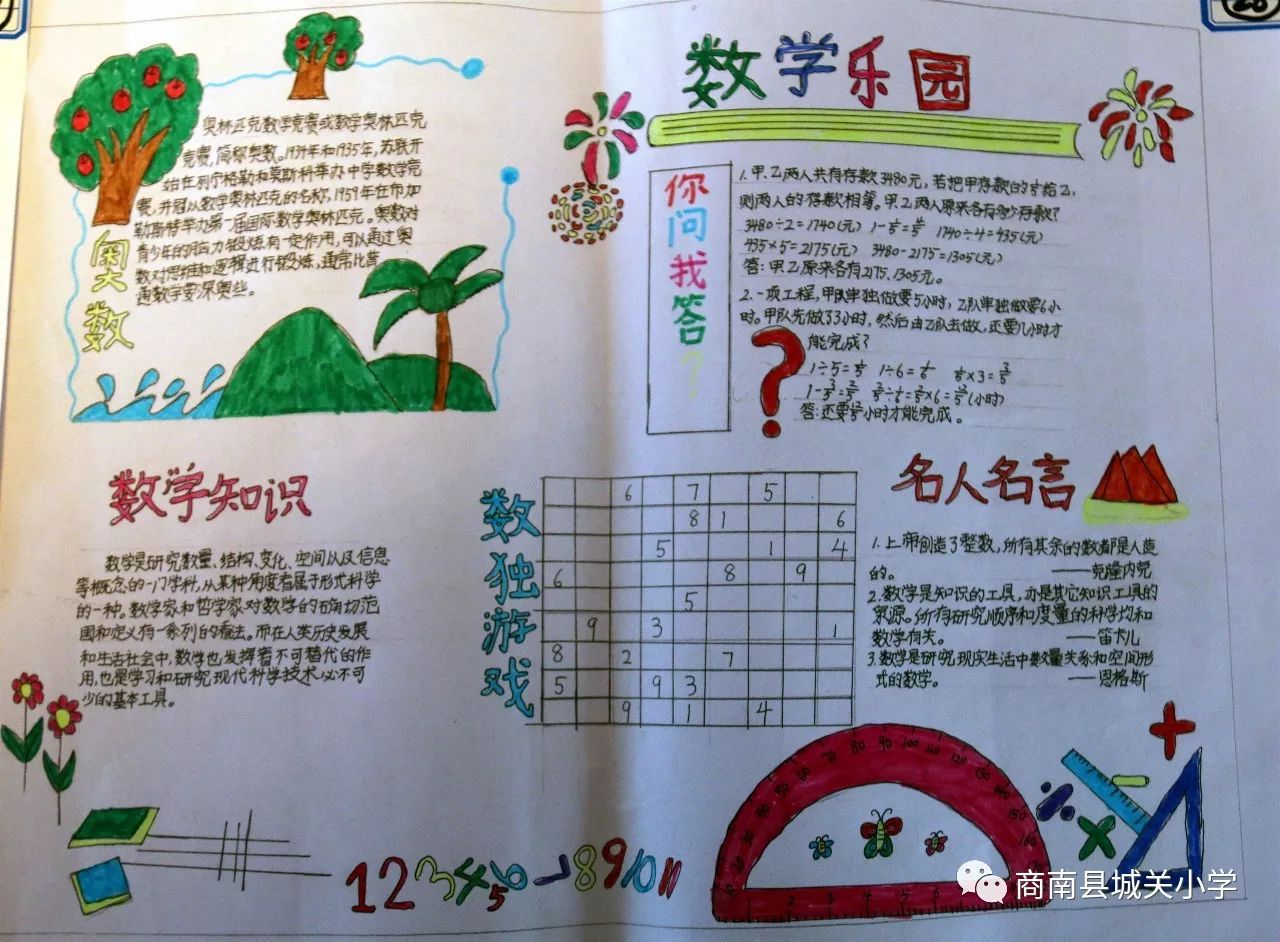 28
数学乐园
奥数
奥林匹克数学竞赛或数学奥林匹克
竞赛，简称奥数。1934年和1935年，苏联开
始在列宁格勒和莫斯科举办中学数学竞
赛，并冠以数学奥林匹克的名称，1959年在布加
勒斯特举办第一届国际数学奥林匹克。奥数对
青少年的脑力锻炼有一定作用，可以通过奥
数对思维和逻辑进行锻炼，通常比普
通数学要深奥些。
你问我答？
1.甲、乙两人共有存款3480元，若把甲存款的
给乙，
则两人的存款相等。甲乙两人原来各有多少存款？
3480÷2=1740(元)
1740÷4=435(元)
435×5=2175(元) 3480-2175=1305(元)
答：甲乙原来各有2175、1305元。
2.一项工程，甲队单独做要5小时，乙队单独做要6小
时。甲队先做了3小时，然后由乙队去做，还要几小时才
能完成？
1÷5=1/5 1÷6=1/6 1/5×3=3/5
1-3/5=2/5 2/5÷1/6=2/5×6=12/5(小时)
答：还要12/5小时才能完成。
?
数学知识
数学是研究数量、结构、变化、空间以及信息
等概念的一门学科，从某种角度看属于形式科学
的一种。数学家和哲学家对数学的确切范
围和定义有一系列的看法。而在人类历史发展
和生活社会中，数学也发挥着不可替代的作
用，也是学习和研究现代科学技术必不可
少的基本工具。
数独游戏
6 7 5
8 1 6
5 1 4
6 8 9
5
9 3 1
8 2 7
5 9 3
9 1 4
名人名言
1.上帝创造了整数，所有其余的数都是人造
的。 ——克隆内克
2.数学是知识的工具，亦是其它知识工具的
泉源。所有研究顺序和度量的科学均和
数学有关。 ——笛卡儿
3.数学是研究现实生活中数量关系和空间形
式的数学。 ——恩格斯
1 2 3 4 5 6 7 8 9 10 11
70 80 90 100 110 120 130
150 160
商南县城关小学